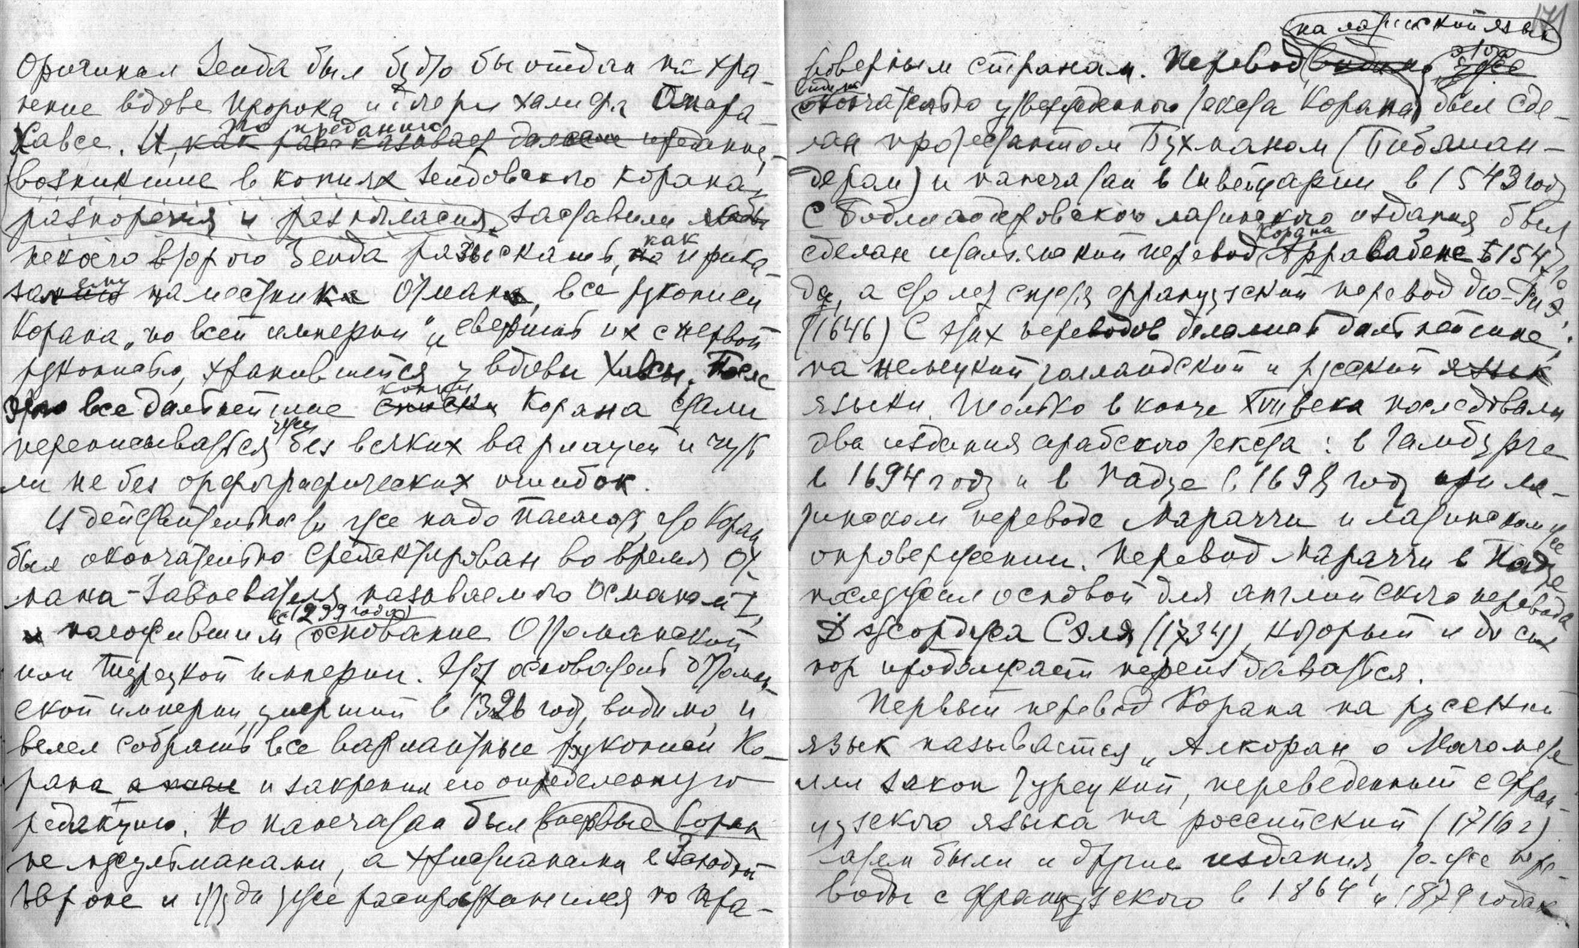 Оригинал Зеида был будто бы отдан на хра-
нение вдове пророка и дочери халифа Омара -
Хавсе. И, как рассказывает далее предание,
по преданию
возникшие в копиях Зеидовского Корана
разноречия и разногласия заставили
некоего второго Зеида разыскать, как прика-
зал наместник Отман, все рукописи
Корана „по всей империи" и сверить их с первой
рукописью, хранившейся у вдовы Хавсы. После
этого все дальнейшие копии Корана стали
переписываться уже без всяких вариаций и чуть
ли не без орфографических ошибок.
И действительно уже надо полагать, что Коран
был окончательно средактирован во время От-
мана-Завоевателя, называемого Османом I,
(с 1299 года)
положившим основание Оттоманской
или Турецкой империи. Этот основатель Оттоман-
ской империи, умерший в 1326 году, видимо, и
велел собрать все вариантные рукописи Ко-
рана и закрепил его определенную
редакцию. Но напечатан был впервые Коран
не мусульманами, а христианами в Западной
Европе и оттуда уже распространился по пра-
171
на латинский язык
воверным странам. Перевод этого
окончательно утвержденного текста Корана был сде-
лан протестантом Бухманом (Библиан-
дером) и напечатан в Швейцарии в 1543 году
С Библиандеровского латинского издания был
сделан итальянский перевод Корана Арравабене в 1547 го-
ду, а сто лет спустя французский перевод дю-Рие
(1646) С этих переводов делались дальнейшие:
на немецкий, голландский и русский
языки. Только в конце XVII века последовали
два издания арабского текста: в Гамбурге
в 1694 году и в Падуе в 1698 году при ла-
тинском переводе Мараччи и латинском же
опровержении. Перевод Мараччи в Падуе
послужил основой для английского перевода
Джорджа Сэля (1734), который и до сих
пор продолжает переиздаваться.
Первый перевод Корана на русский
язык называется „Алкоран о Магомете
или закон турецкий, переведенный с фран-
цузского языка на российский (1716 г)
Затем были и другие издания, тоже пере-
воды с французского в 1864 и 1879 годах